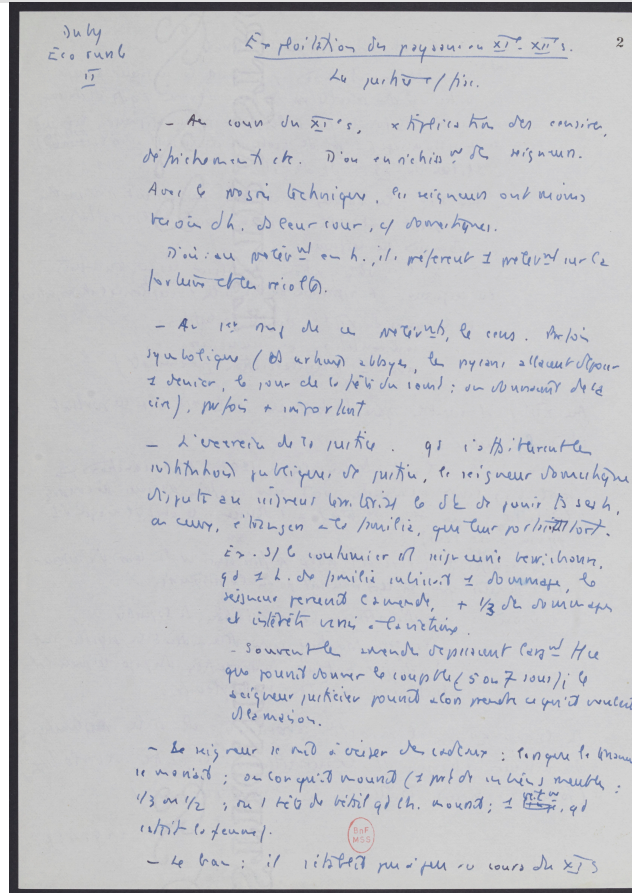 Duby
Eco rurale
II
2
Exploitation des paysans au XIe - XIIe s.
La justice / fisc.
- Au cours du XIe s, des censives,
défrichements etc. D'où enrichisst des seigneurs.
Avec le progrès technique, les seigneurs ont moins
besoin d'h. ds leur cour, c/ domestiques.
D'où : au prélèvnt en h., ils préfèrent 1 prélèvnt sur la
et les récoltes.
- Au 1er rang de ces prélèvnts, le cens. Parfois
symbolique (ds abbayes, les paysans allaient déposer
1 denier, le jour de la fête du saint ; ou donnaient de la
cire), parfois + important
- L'exercice de la justice. qd s'affaiblirent les
institutions publiques de justice, le seigneur domestique
disputa au seigneur le dt de punir ts serfs,
ou ceux, étrangers à la familia, que leur
Ex. S/ le coutumier
qd 1 h. de familia subissait 1 dommage, le
seigneur percevait l'amende, + 1/3 des dommages
et intérêts versés à la victime.
- Souvent les amendes dépassaient largnt tt ce
que pouvait donner le coupable (5 ou 7 sous) ; le
seigneur justicier pouvait alors prendre ce qu'il voulait
ds la maison.
- Le seigneur se mit à exiger des cadeaux : lorsque le tenancier
se mariait ; ou lorsqu'il mourait (1 part de ses biens meubles :
1/3 ou 1/2 ; ou 1 tête de bétail qd l'h. mourait ; 1 vêtnt, qd
c'était la femme).
BnF
MSS
- Le ban : il s'établit peu à peu au cours du XIe s